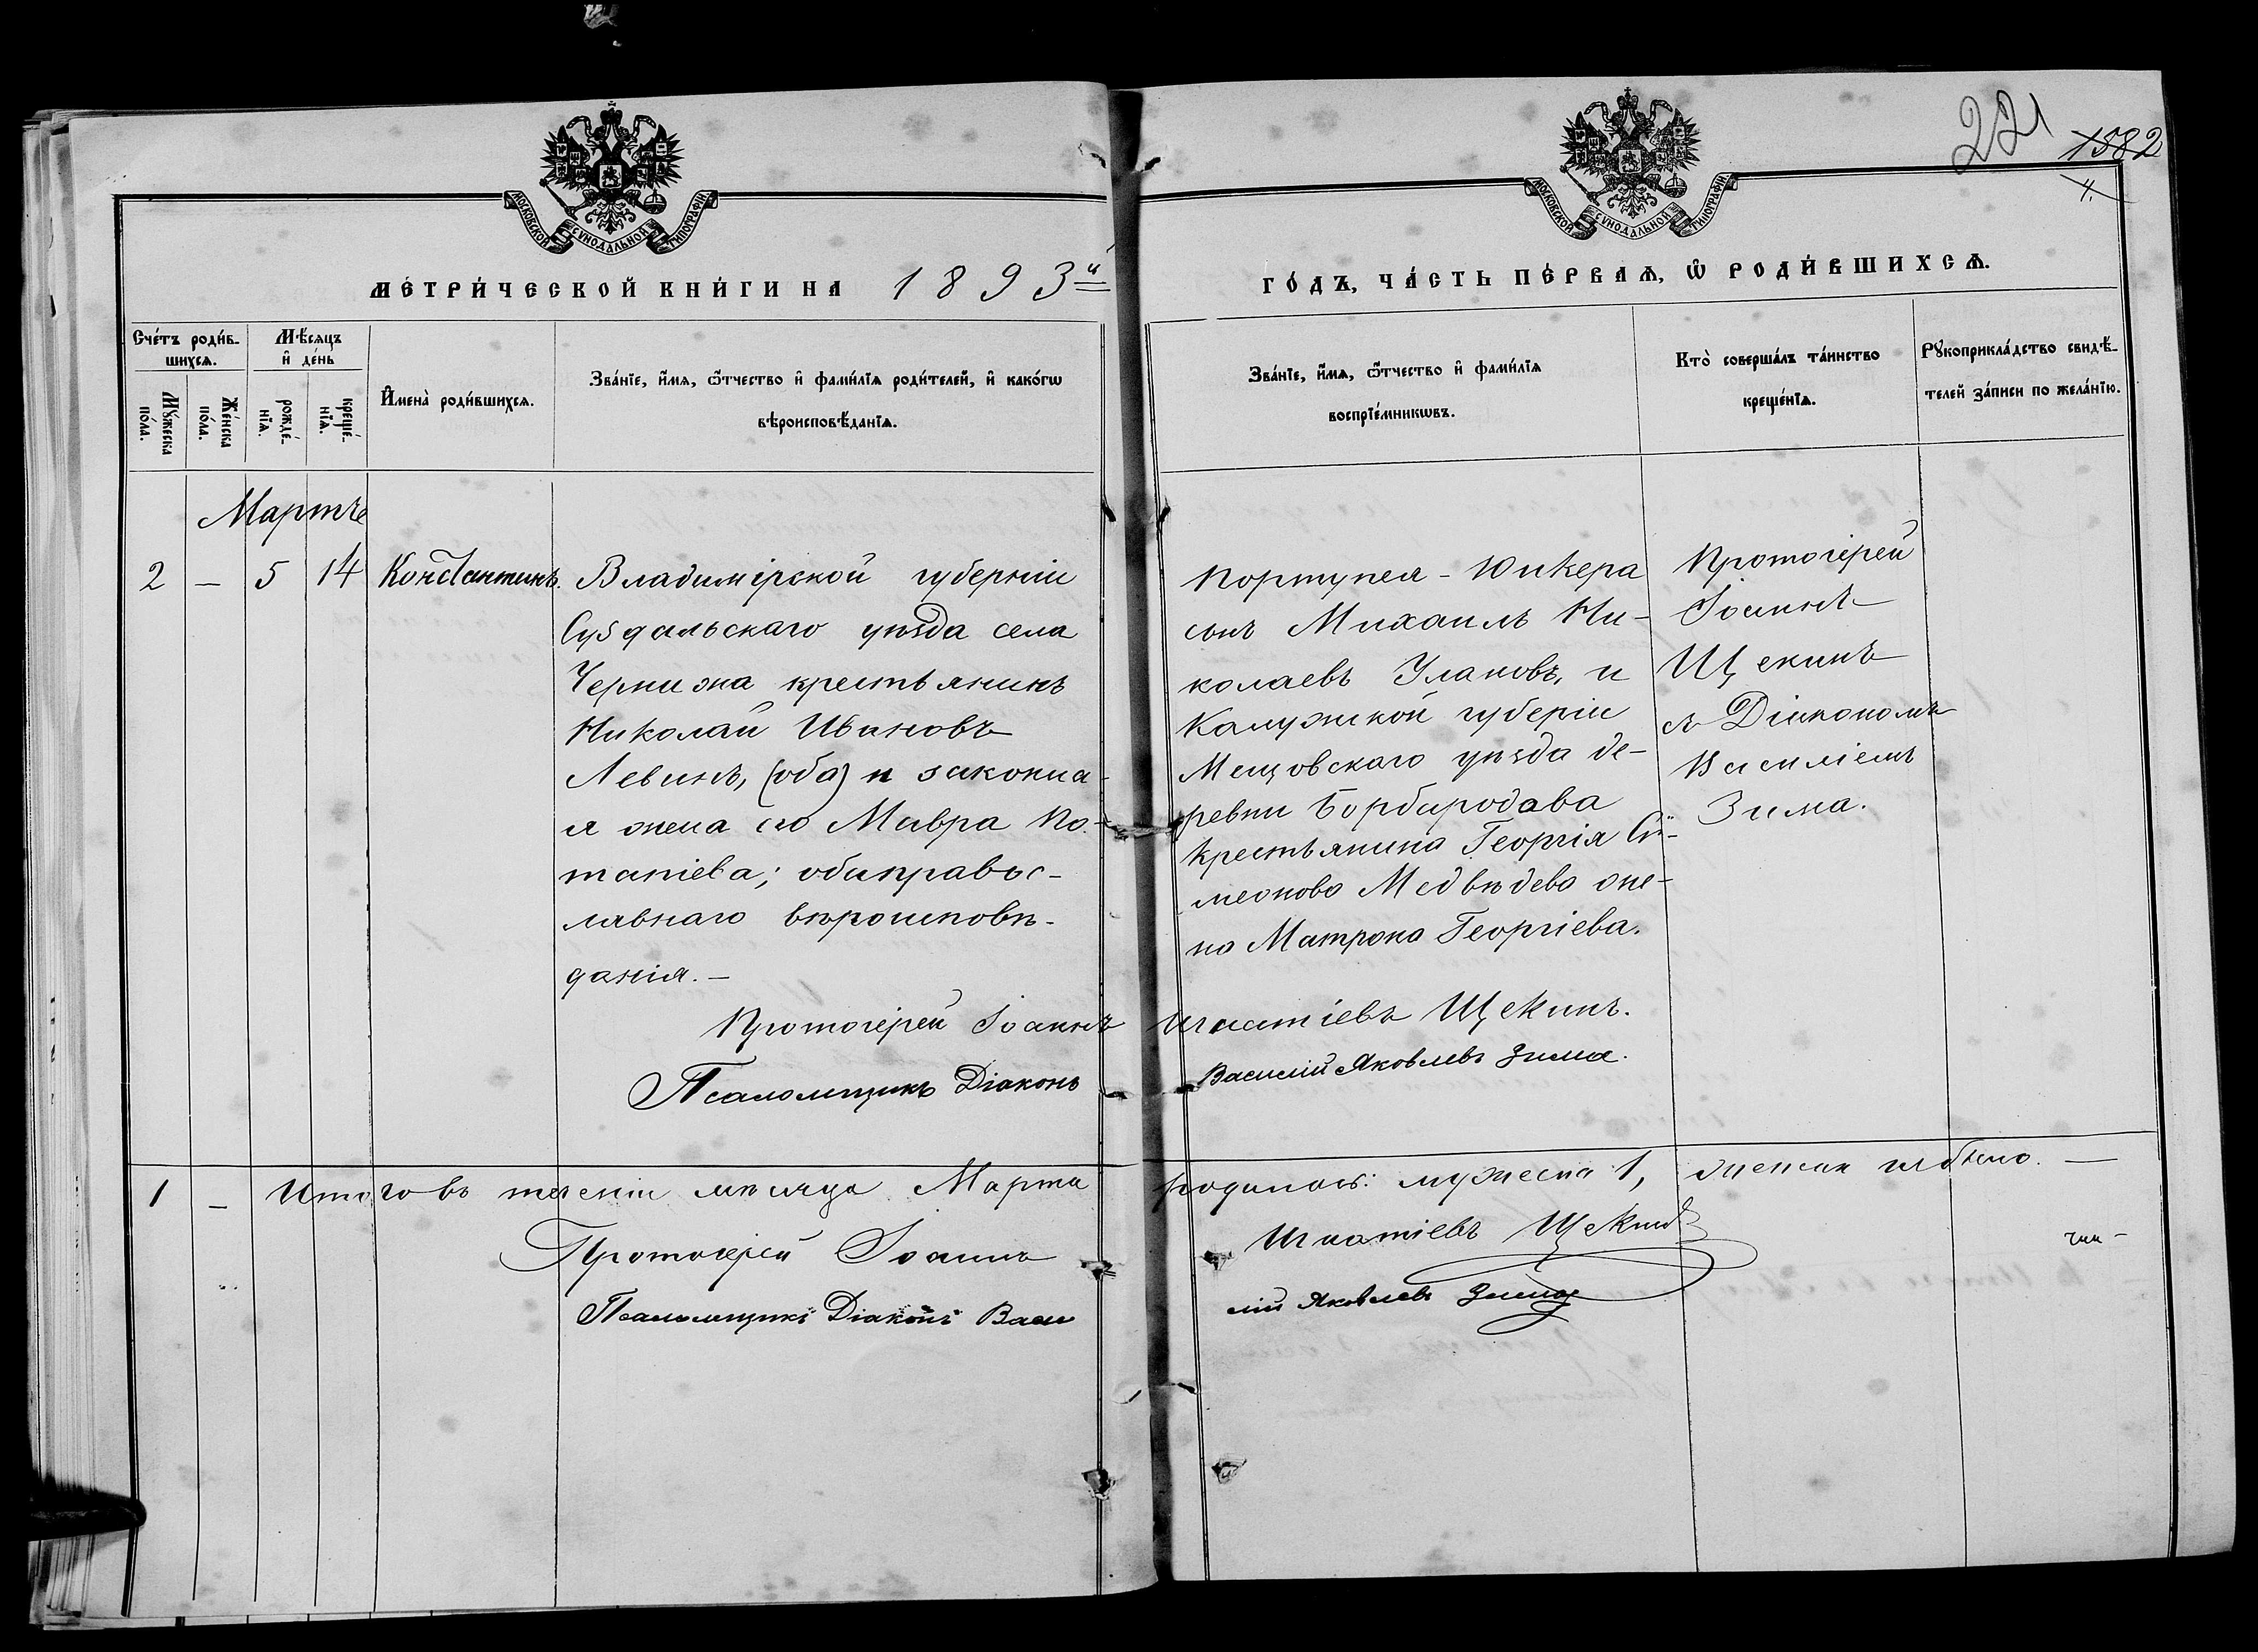 221
1582
4.
МОСКОВСКОЙ СѴНОДАЛЬНОЙ ТИПОГРАФІИ
МОСКОВСКОЙ СѴНОДАЛЬНОЙ ТИПОГРАФІИ
МЕ́ТРИ́ЧЕСКОЙ КНИ́ГИ НА 1893й
ГО́ДЪ, ЧА́СТЬ ПЕ́РВАѦ, Ѡ҆ РОДИ́ВШИХСѦ.
Сче́тъ роди́в-
шихсѧ.
Мѹ́жеска
по́ла.
Же́нска
по́ла.
Мѣ́сѧцъ
и҆ де́нь
рожде́-
нїѧ.
креще́-
нїѧ.
И҆мена̀ роди́вшихсѧ.
Зва́нїе, и҆́мѧ, ѻ҆́тчество и҆ фами́лїѧ роди́телей, и҆ како́гѡ
вѣроисповѣ́данїѧ.
Зва́нїе, и҆́мѧ, ѻ҆́тчество и҆ фами́лїѧ
воспрїе́мникѡвъ.
Кто̀ соверша́лъ та́инство
креще́нїѧ.
Рꙋкоприкла́дство свидѣ́-
телей за́писи по жела́нїю.
Мартъ
2 — 5 14 Константинъ.
Владимірской губерніи
Суздальскаго уѣзда села
Чернижа крестьянинъ
Николай Ивановъ
Левинъ, (оба) и законна-
я жена его Мавра По-
тапіева; оба правос-
лавнаго вѣроисповѣ-
данія.—
Портупея-Юнкера
сынъ Михаилъ Ни-
колаевъ Улановъ, и
Калужской губеріи
Мещовскаго уѣзда де-
ревни Борбародава
крестьянина Георгія Си-
меонова Медвѣдева же-
на Матрона Георгіева.
Протоіерей
Іоаннъ
Щекинъ
съ Діакономъ
Василіемъ
Зима.
Протоіерей Іоаннъ Игнатіевъ Щекинъ.
Псаломщикъ Діаконъ Василій Яковлевъ Зима.
1 — Итого въ теченіи мѣсяца Марта родилось: мужеска 1, женска не было. —
Протоіерей Іоаннъ Игнатіевъ Щекинъ
Псаломщикъ Діаконъ Васи лій Яковлевъ Зима